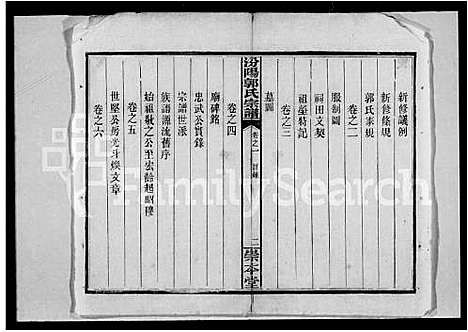 新修議例
新修條規
郭氏家規
卷之二
服制圖
祠田文契
祖塋特記
卷之三
墓圖
汾陽郭氏宗譜
卷之一
目錄
二
崇本堂
卷之四
廟碑銘
忠武公實錄
宗譜世派
族譜源流舊序
始祖敬之公至宏齡起昭穆
卷之五
世堅公房光斗煥文章
卷之六
FamilySearch